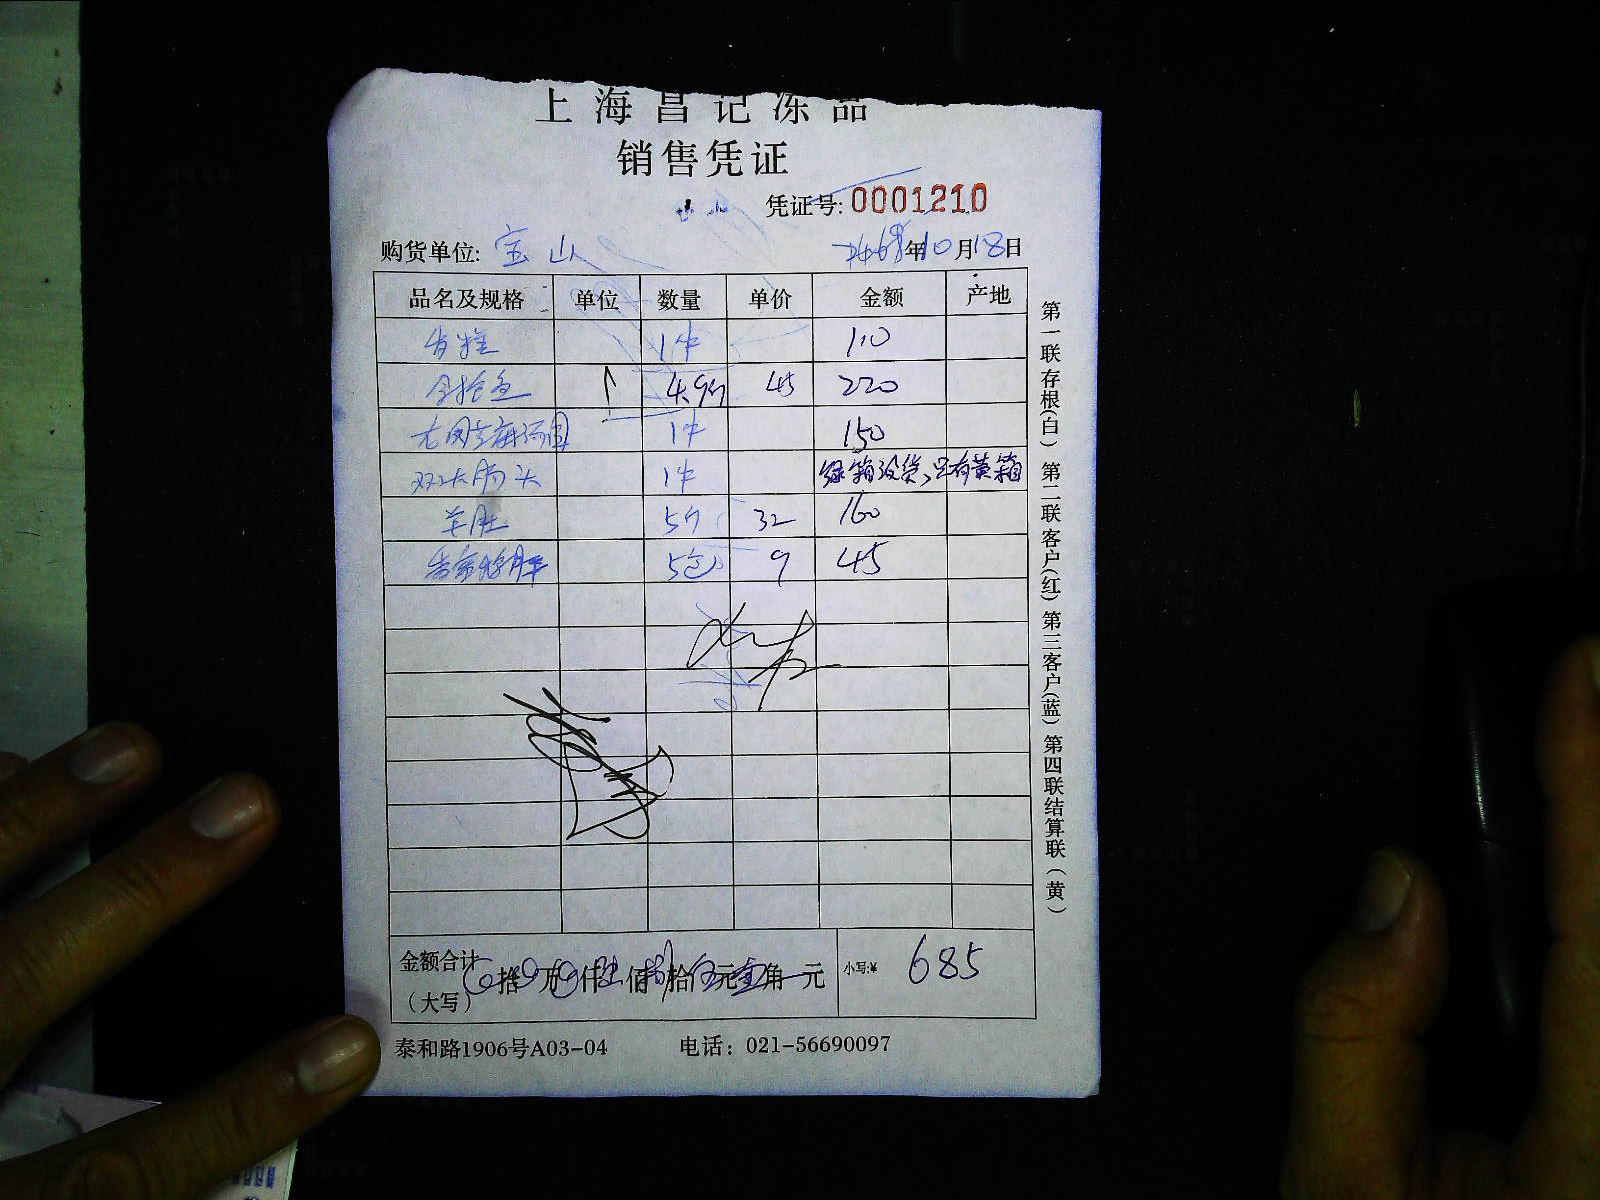 上海昌记冻品
销售凭证
凭证号: 0001210
购货单位: 宝山 年10月18日
品名及规格 单位 数量 单价 金额 产地
1件 110
4.9斤 45 220
1件 150
双汇大肠头 1件 绿箱没货,只有黄箱
羊肚 5斤 32 160
5包 9 45
金额合计(大写) 拾 万 仟 佰 拾 元 角 元 小写:¥ 685
泰和路1906号A03-04 电话: 021-56690097
第一联存根(白) 第二联客户(红) 第三客户(蓝) 第四联结算联(黄)